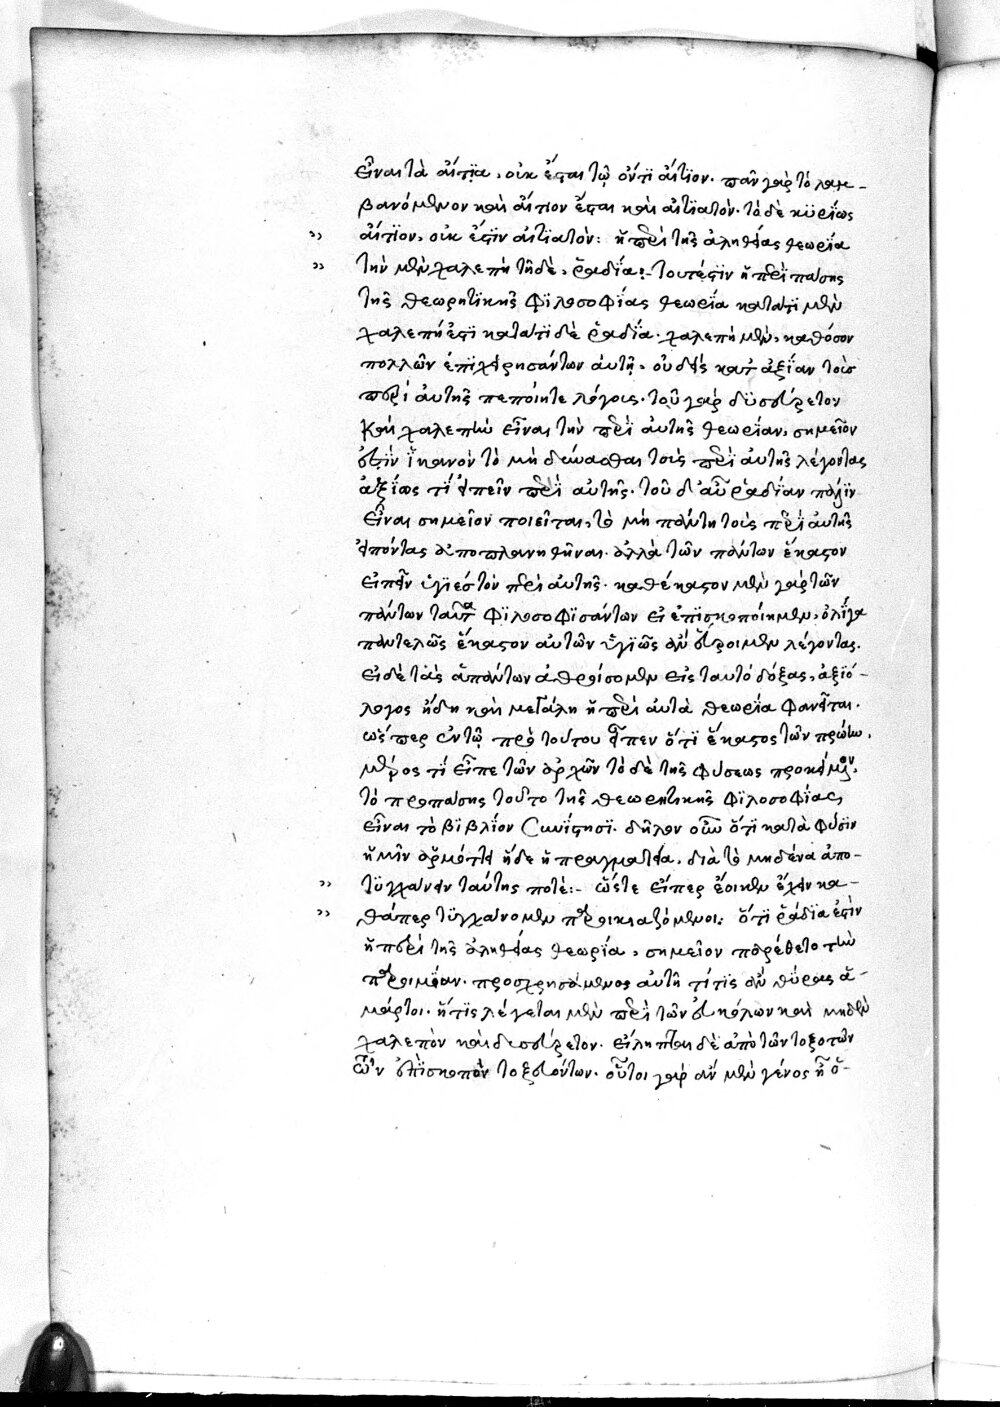 εἶναι τὰ αἴτϊα, οὐκ ἔσται τῷ ὄντϊ αἴτϊον. πᾶν γὰρ τὸ λαμ-
βανόμενον καὶ αἴτιον ἔσται καὶ αἰτϊατόν. τὸ δὲ κϋρΐως
αἴτϊον, οὐκ ἔστϊν αἰτϊατόν: ἡ περὶ τῆς ἀληθείας θεωρΐα
τῆν μὲν χαλεπὴ τῆδὲ, ῥαδΐα:- τουτέστϊν ἡ περὶ πάσης
τῆς θεωρητϊκῆς φϊλοσοφΐας θεωρΐα κατατϊ μὲν
χαλεπή ἐστϊ κατατϊ δὲ ῥαδΐα. χαλεπὴ μὲν, καθόσον
πολλῶν ἐπϊχειρησάντων αὐτῇ, οὐδεὶς κατ' ἀξΐαν τοὺς
περὶ αὐτῆς πεποίητε λόγοις. τοῦ γὰρ δϋσεύρετον
καὶ χαλεπὴν εἶναι τὴν περὶ αὐτῆς θεωρΐαν, σημεῖον
ἐστϊν ἱκανὸν τὸ μὴ δύνασθαι τοὺς περὶ αὐτῆς λέγοντας
ἀξΐως τΐ εἰπεῖν περὶ αὐτῆς. τοῦ δ' αὖ ῥαδΐαν πάλϊν
εἶναι σημεῖον ποιεῖται, τὸ μὴ πάντη τοὺς περὶ αὐτῆς
εἰπόντας ἀποπλανηθῆναι. ἀλλὰ τῶν πάντων ἕκαστον
εἰπεῖν ὑγϊές τὸν περὶ αὐτῆς. καθέκαστον μὲν γὰρ τῶν
πάντων ταῦτα φϊλοσοφϊσάντων εἰ ἐπϊσκοποίημεν, ὀλΐγα
παντελῶς ἕκαστον αὐτῶν ὑγϊῶς ἂν εὕροιμεν λέγοντας.
εἰ δὲ τὰς ἁπάντων ἀθροίσομεν εἰς ταυτὸ δόξας, ἀξϊό-
λογος ἤδη καὶ μεγάλη ἡ περὶ αὐτὰ θεωρΐα φανεῖται.
ὥσπερ ἐν τῷ πρὸ τούτου εἶπεν ὅτϊ ἕκαστος τῶν πρώτων,
μέρος τΐ εἶπε τῶν ἀρχῶν τὸ δὲ τῆς φύσεως προκείμενον,
τὸ προπάσης τοῦτο τῆς θεωρητϊκῆς φϊλοσοφΐας
εἶναι τὸ βϊβλΐον συνΐστησϊ. δῆλον οὖν ὅτϊ κατὰ φύσϊν
ἡμῖν ἁρμόττει ἥδε ἡ πραγματεία, διὰ τὸ μηδένα ἀπο-
τϋγχάνειν ταύτης ποτέ:- ὥστε εἴπερ ἔοικεν ἔχειν κα-
θάπερ τϋγχάνομεν παροιμιαζόμενοι: ὅτϊ ῥᾳδΐα ἐστϊν
ἡ περὶ τῆς ἀληθείας θεωρΐα, σημεῖον παρέθετο τὴν
παροιμΐαν. προσχρησάμενος αὐτῇ τΐ τϊς ἂν θύρας ἁ-
μάρτοι. ἥτϊς λέγεται μὲν περὶ τῶν εὐκόλων καὶ μηδὲν
χαλεπὸν καὶ δεσεύρετον. εἴληπται δὲ ἀπὸ τῶν τοξοτῶν
τῶν ἐπὶ σκοπὸν τοξευόντων. οὗτοι γὰρ ἂν μὲν γένος ᾖ ὁ-